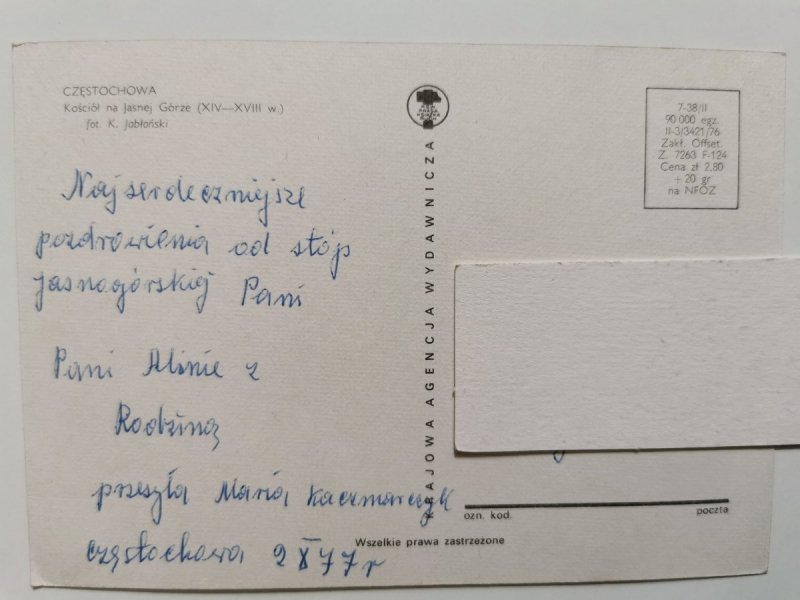 CZĘSTOCHOWA
Kościół na Jasnej Górze (XIV—XVIII w.)
fot. K. Jabłoński
Najserdeczniejsze
pozdrowienia od stóp
jasnogórskiej Pani
Pani Alinie z
Rodziną
przeszła Maria Kaczmarczyk
Częstochowa 2 X 77 r
KRAJOWA AGENCJA WYDAWNICZA
Wszelkie prawa zastrzeżone
7-38/II
90 000 egz.
II-3/3421/76
Zakł. Offset.
Z. 7263 F-124
Cena zł 2,80
+ 20 gr
na NFOZ
ozn. kod.
poczta